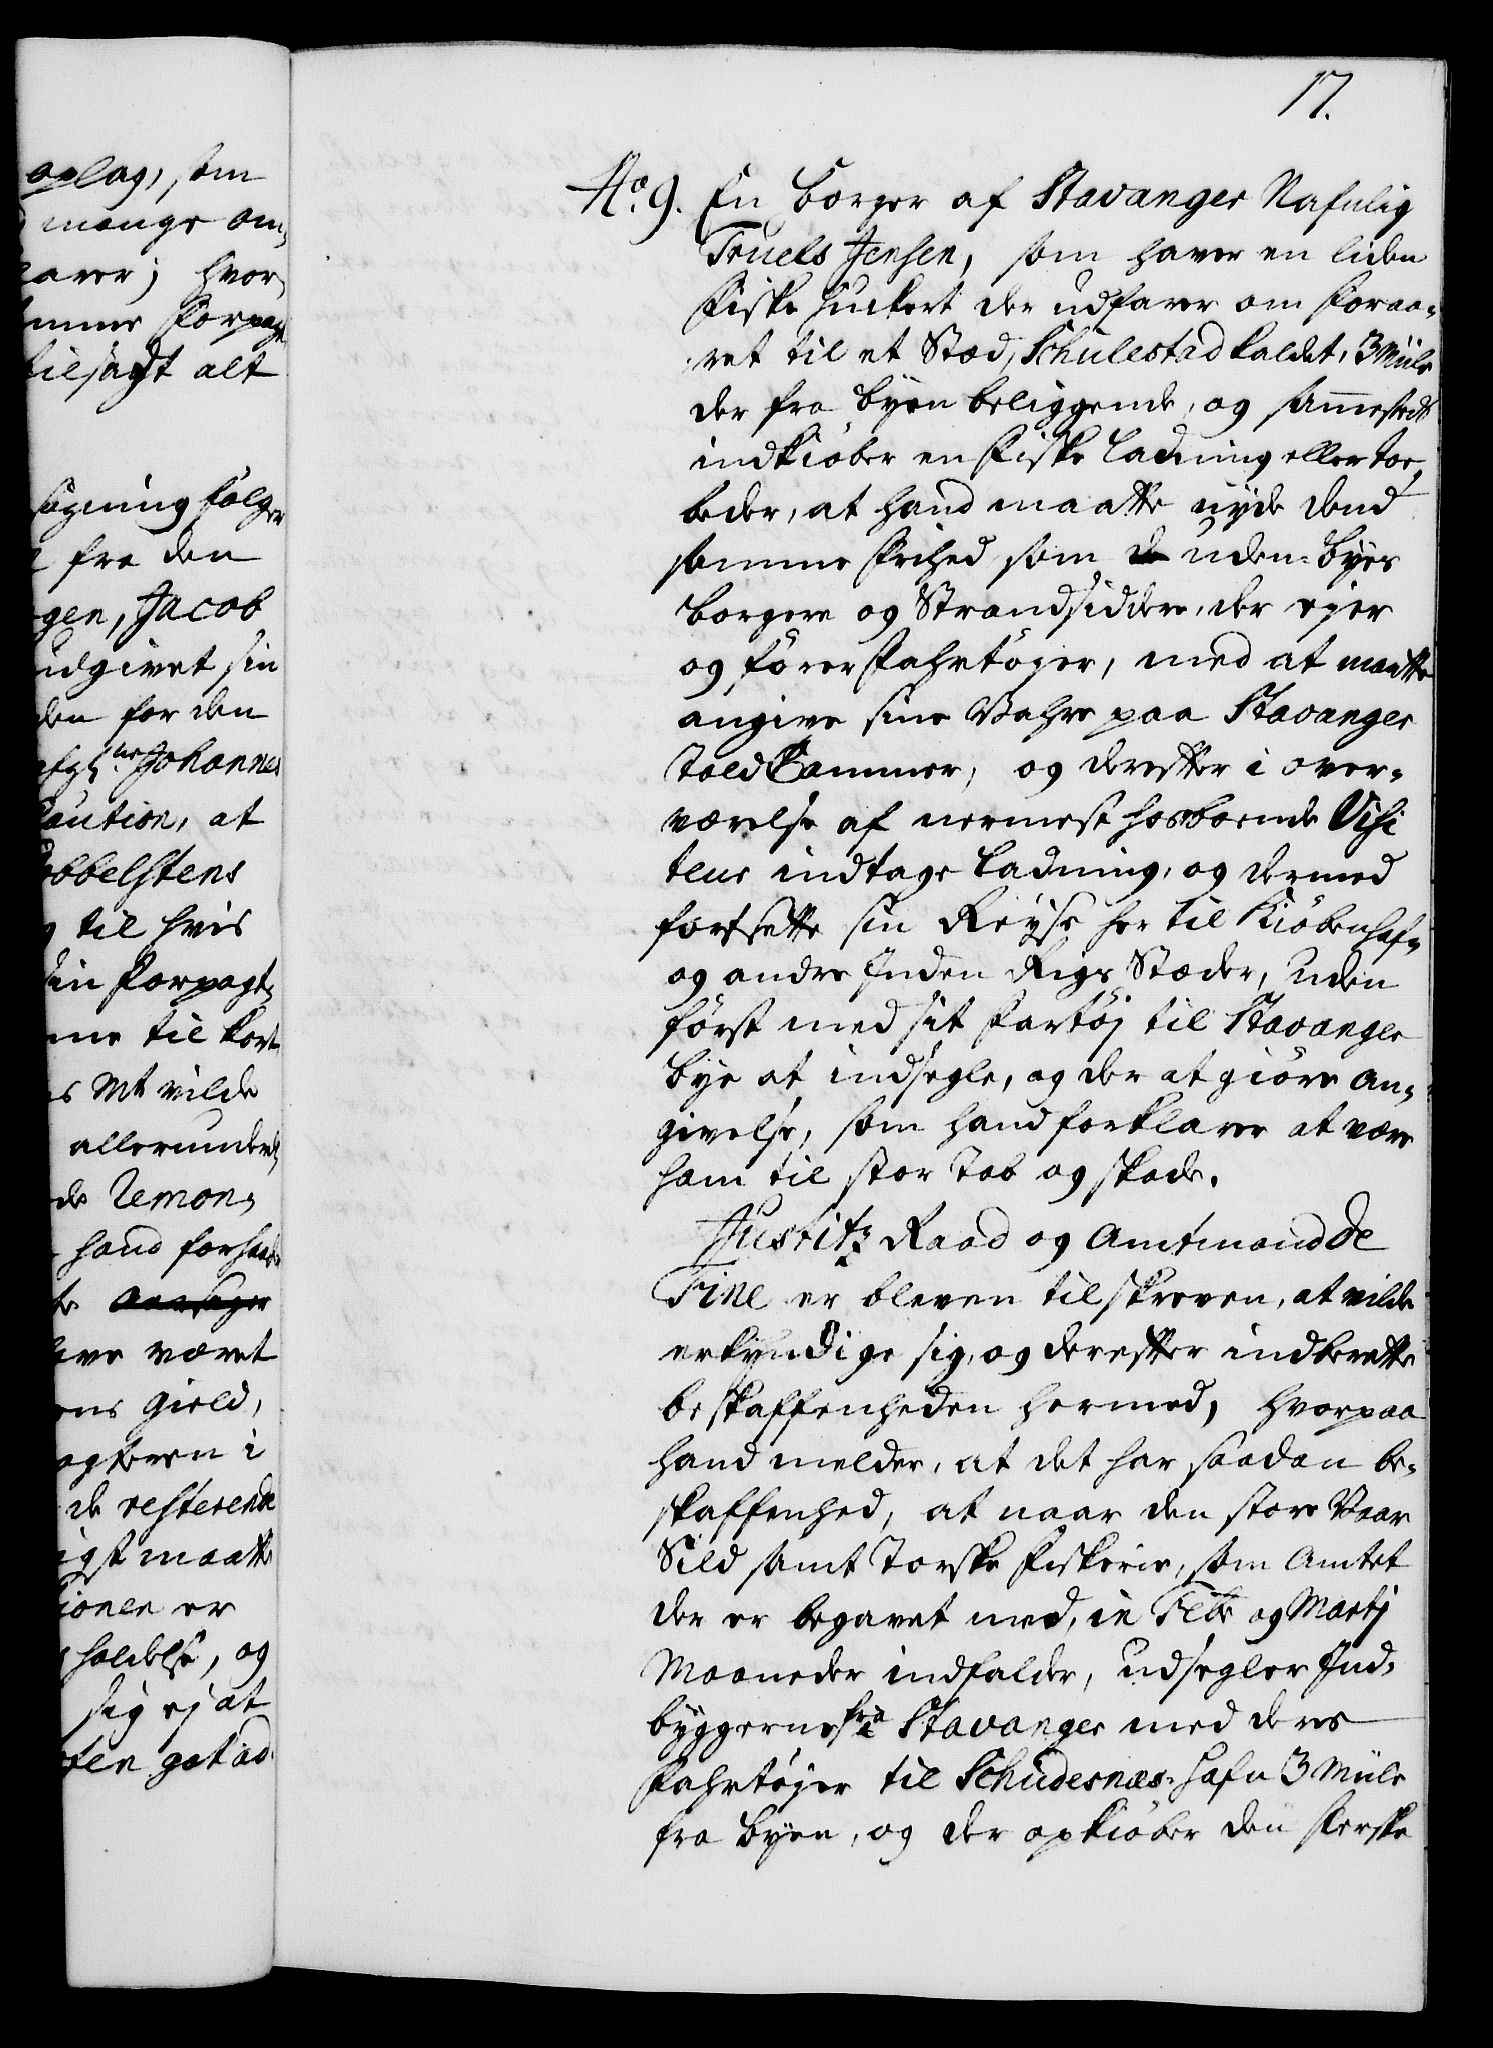 17.
No. 9. En borger af Stavanger Nafnlig
Truels Jensen, som haver en liden
Fiske Huckert der udfarer om Foraa-
ret til et Stæd, Schulestad kaldet, 3 Miile
der fra Byen beliggende, og sammestedz
indkiöber en Fiske Ladning eller toe,
beder, at hand maatte nyde dend
samme Frihed som de uden-byes
borgere og Strandsiddere, der ejer
og förer Fahrtöyer, med at maatte
angive sine Vahre paa Stavanger
Told Cammer, og derefter i over-
værelse af nermest hosboende Visi
teur indtage Ladning, og dermed
fortsette sin Reyse her til Kiöbenhafn
og andre Inden Rigs Stæder, uden
först med sit Fartöj til Stavanger
bye at indsegle, og der at giöre an-
givelse, som hand forklarer at være
ham til stor Tab og skade.
Justitz Raad og Amtmand de
Fine er bleven tilskreven, at vilde
erkyndige sig, og derefter indberette
beskaffenheden hermed, hvorpaa
hand melder, at det har saadan be-
skaffenhed, at naar den store Vaar
Sild samt Torske Fiskerie, som Amtet
der er begavet med, in Febr og Martj
Maaneder indfalder, udsegler Ind-
byggerne fra Stavanger med deres
Fahrtöjer til Schudesnæs-hafn 3 Miile
fra Byen, og der opkiöber den ferske
oplag, som
mange om,
arer; hvor,
mme Forpagt,
tilsagt alt
fra den
gen, Jacob
udgivet sin
den for den
Johannes
Caution, at
obbelstens
til hvis
din Forpagt,
me til kort
s Mt vilde
allerunder
de Remon,
hand forhaab
ave været
ens gield,
agteren i
de resterende
igst maatte
ionen er
holdelse, og
sig ej at